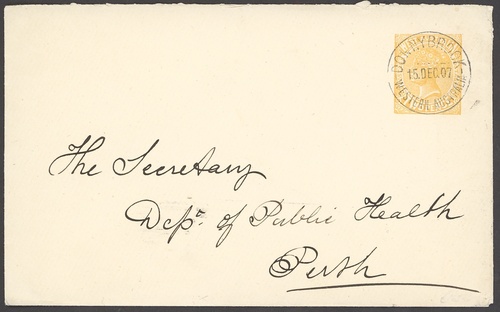 DONNYBROOK
15.DEC.07
WESTERN AUSTRALIA
The Secretary
Depr. of Public Health
Perth